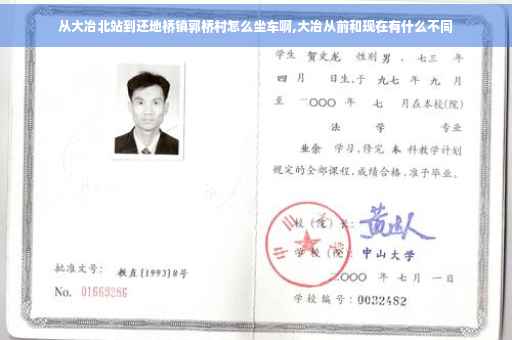 从大冶北站到还地桥镇郭桥村怎么坐车啊,大冶从前和现在有什么不同
学生 贺文龙 性别 男 、七三 年
四 月 日生,于 九七 年 九 月
至 二〇〇〇 年 七 月在本校(院)
法 学 专业
业余 学习,修完 本 科教学计划
规定的全部课程,成绩合格,准予毕业。
校(院)长:
学 校(院): 中山大学
二〇〇〇 年 七 月 一 日
批准文号: 教直[1993]8号
No. 01669286
学校编号: 0032482